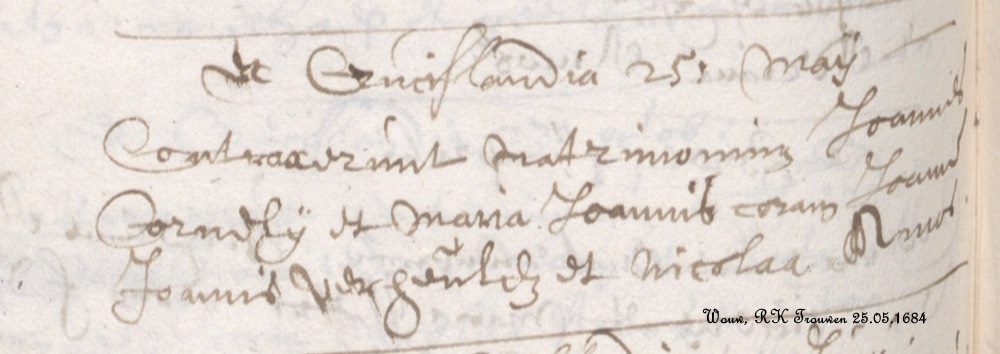 Et Cruijslandia 25: Maÿ
Contraxerunt matrimonium Joannes
Cornelÿ et Maria Joannis coram Joanne
Joannis Verheuldz et Nicolaa
Wouw, RK Trouwen 25.05.1684